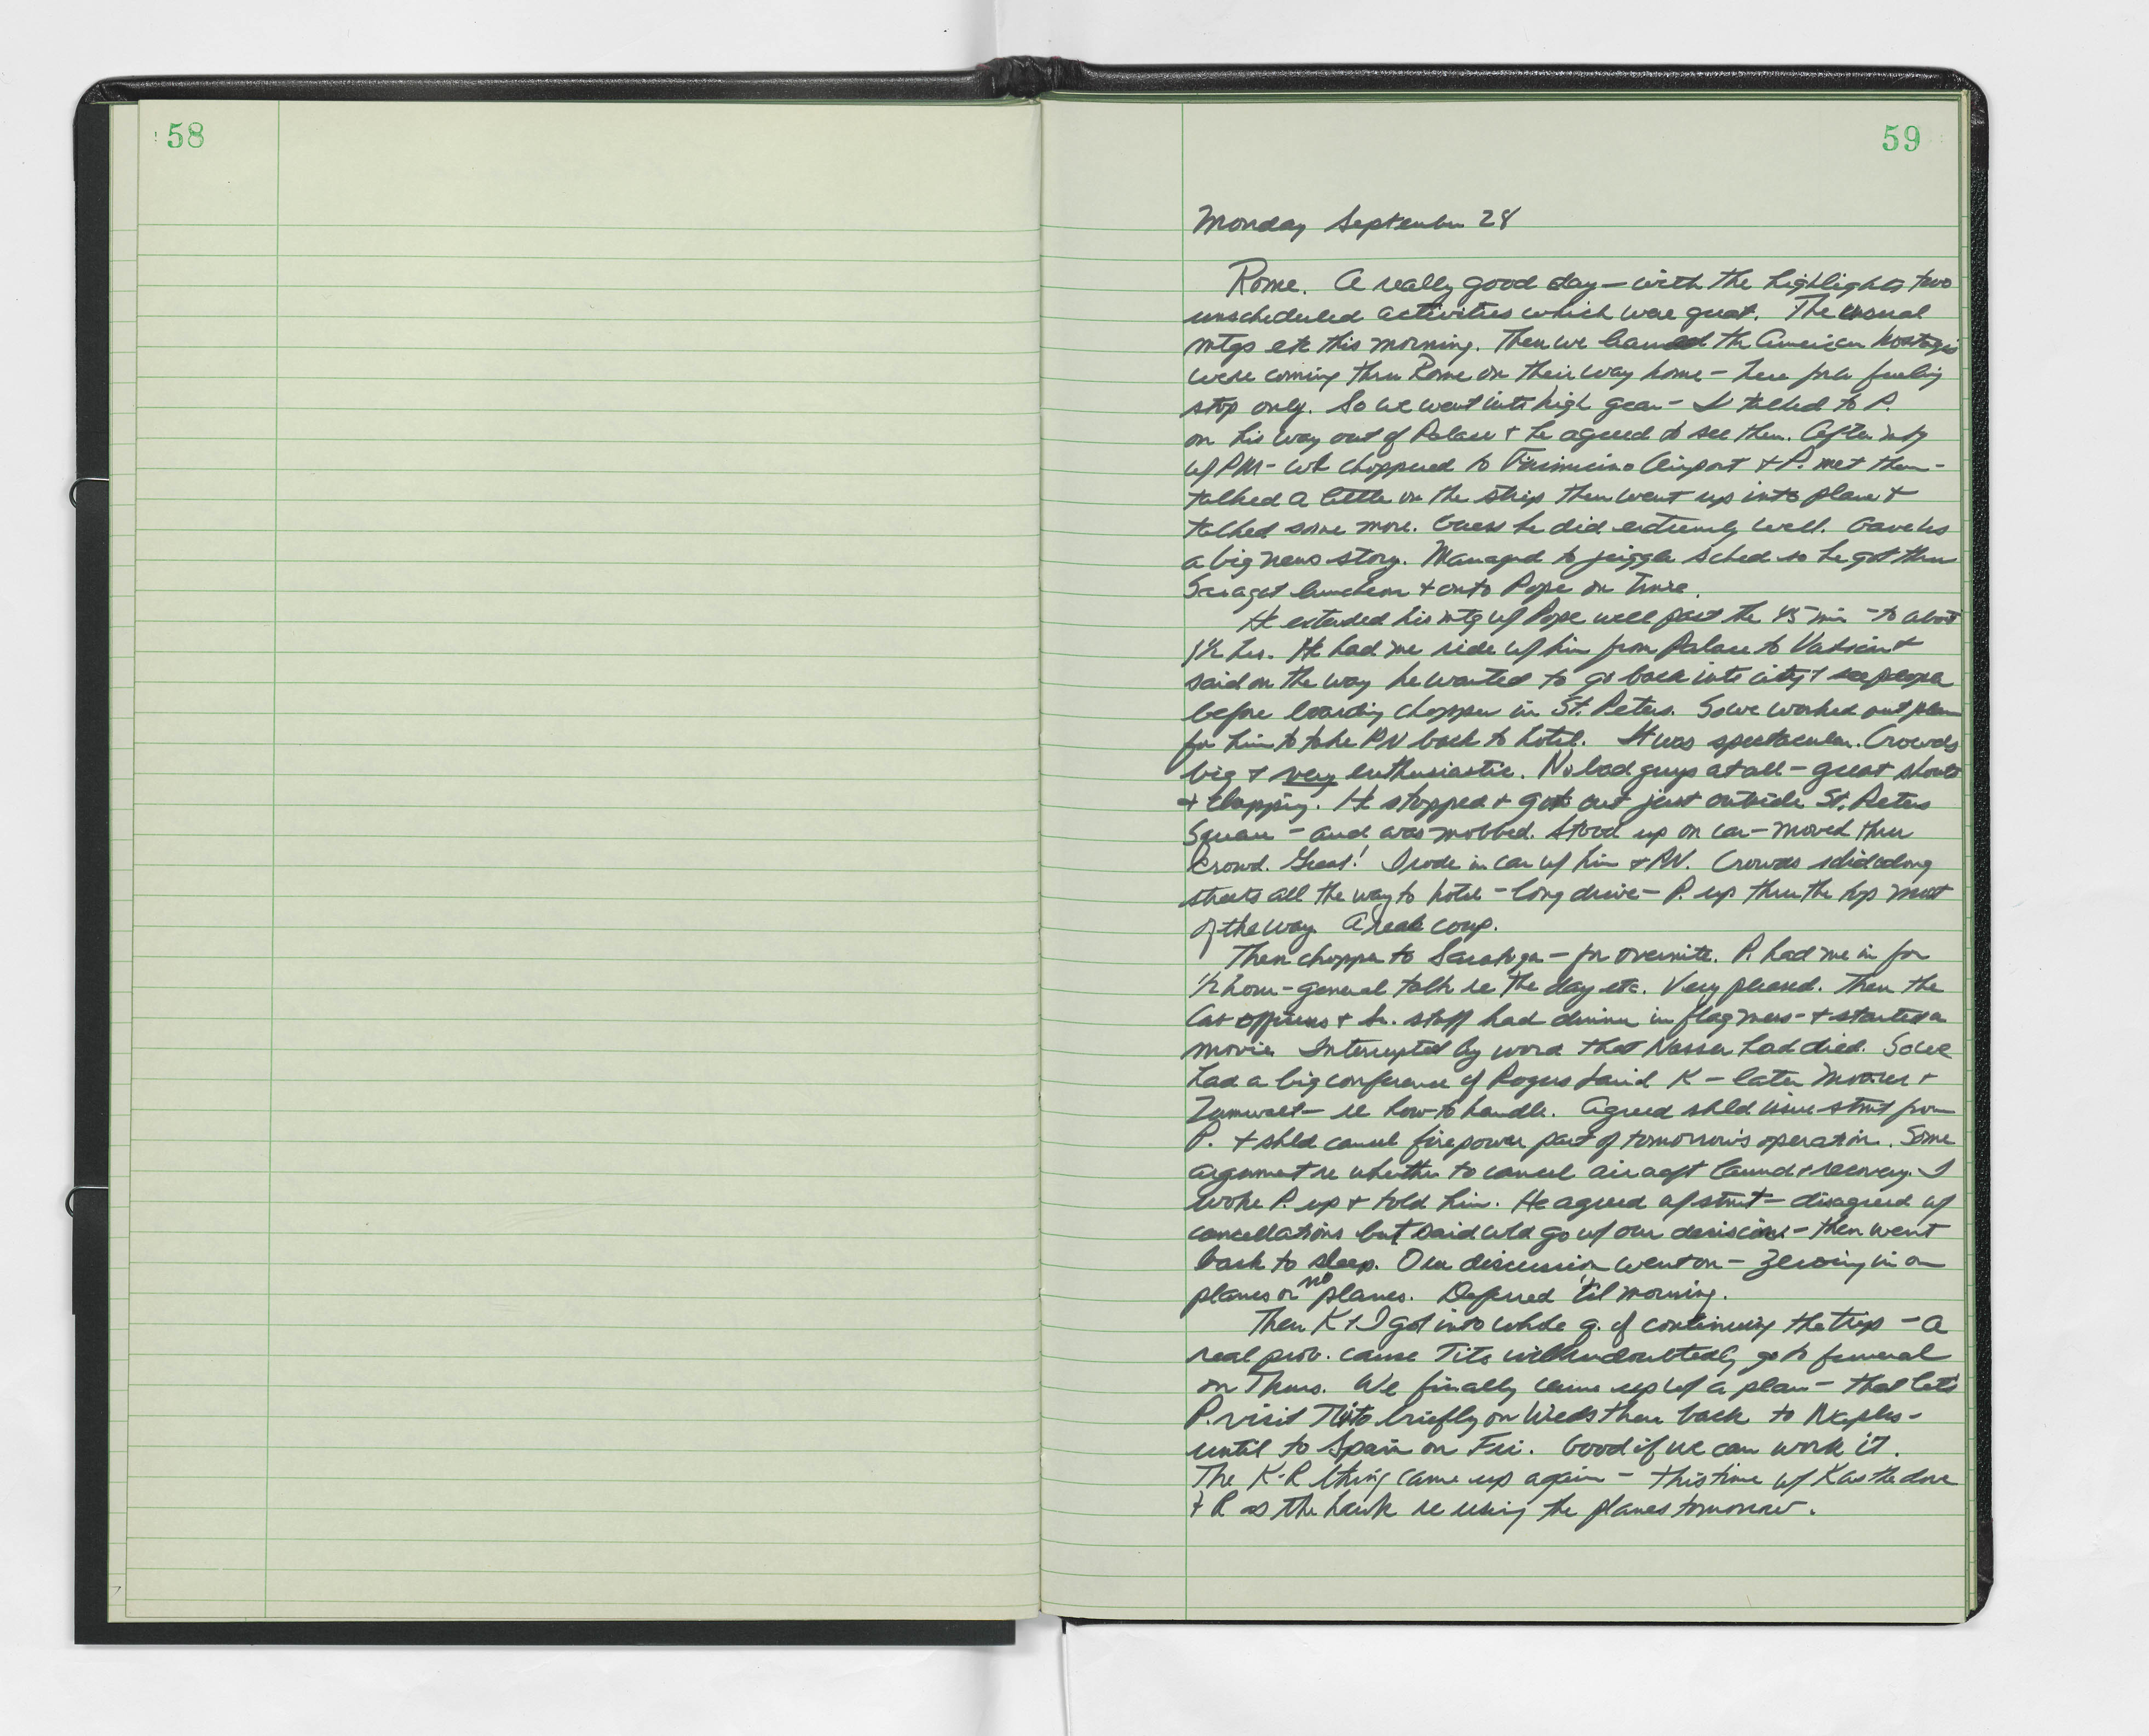 58
59
Monday September 28
Rome. A really good day – with the highlights two
unscheduled activities which were great. The usual
mtgs etc this morning. Then we learned the American hostages
were coming thru Rome on their way home – here for a fueling
stop only. So we went into high gear – I talked to P.
on his way out of Palace + he agreed to see them. After mtg
w/ PM – we choppered to Fiumicino Airport + P. met them –
talked a little on the strip then went up into plane +
talked some more. Guess he did extremely well. Gave us
a big news story. Managed to juggle sched so he got thru
Saragat luncheon + onto Pope on time.
He extended his mtg w/ Pope well past the 45 min – to about
1½ hrs. He had me ride w/ him from Palace to Vatican +
said on the way he wanted to go back into city + see people
before boarding chopper in St. Peters. So we worked out plan
for him to take PN back to hotel. It was spectacular. Crowds
big + very enthusiastic. No bad guys at all – great shouts
+ clapping. He stopped + got out just outside St. Peters
Square – and was mobbed. Stood up on car – moved thru
crowd. Great! I rode in car w/ him + PN. Crowds solid along
streets all the way to hotel – long drive – P. up thru the top most
of the way. A real coup.
Then chopper to Saratoga – for overnite. P. had me in for
½ hour – general talk re the day etc. Very pleased. Then the
Cab officers + Sr. staff had dinner in flag mess – + started a
movie. Interrupted by word that Nasser had died. So we
had a big conference w/ Rogers Laird K – later Moorer +
Zumwalt – re how to handle. Agreed shld issue stmt from
P. + shld cancel firepower part of tomorrow's operation. Some
argument re whether to cancel aircraft launch + recovery. I
woke P. up + told him. He agreed w/ stmt – disagreed w/
cancellations but said wld go w/ our decision – then went
back to sleep. Our discussion went on – zeroing in on
planes or no planes. Deferred 'til morning.
Then K + I got into whole q. of continuing the trip – a
real prob. cause Tito will undoubtedly go to funeral
on Thurs. We finally came up w/ a plan – that lets
P. visit Tito briefly on Weds then back to Naples –
until to Spain on Fri. Good if we can work it.
The K-R thing came up again – this time w/ K as the dove
+ R as the hawk re using the planes tomorrow.